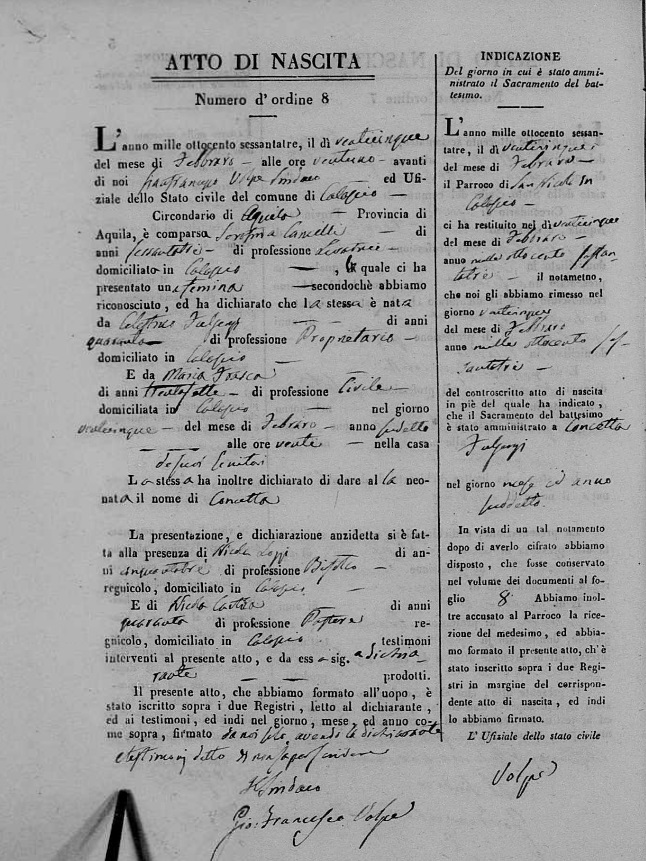 ATTO DI NASCITA
Numero d'ordine 8
L'anno mille ottocento sessantatre, il dì venticinque
del mese di Febbraro alle ore ventuno avanti
di noi Gianfrancesco Volpe Sindaco ed Ufi-
ziale dello Stato civile del comune di
Circondario di Aquila Provincia di
Aquila, è comparsa Serafina di
anni sessantatre di professione Levatrice
domiciliato in , la quale ci ha
presentato una femina secondochè abbiamo
riconosciuto, ed ha dichiarato che la stessa è nata
da di anni
quaranta di professione Proprietario
domiciliato in
E da Maria Fusco
di anni di professione Civile
domiciliata in nel giorno
venticinque del mese di Febraro anno sudetto
alle ore venti nella casa
de suoi Genitori
La stessa ha inoltre dichiarato di dare alla neo-
nata il nome di Concetta
La presentazione, e dichiarazione anzidetta si è fat-
ta alla presenza di Nicola di an-
ni di professione
regnicolo, domiciliato in
E di Nicola di anni
quaranta di professione Pastore re-
gnicolo, domiciliato in testimoni
interventi al presente atto, e da essa sig. a dichia-
rante prodotti.
Il presente atto, che abbiamo formato all'uopo, è
stato iscritto sopra i due Registri, letto al dichiarante,
ed ai testimoni, ed indi nel giorno, mese, ed anno co-
me sopra, firmato da noi solo avendo la dichiarante
e testimonj detto di non saper scrivere
Il Sindaco
Gio: Francesco Volpe
INDICAZIONE
Del giorno in cui è stato ammi-
nistrato il Sacramento del bat-
tesimo.
L'anno mille ottocento sessan-
tatre, il dì venticinque
del mese di Febraro
il Parroco di San Nicola in
ci ha restituito nel dì venticinque
del mese di Febbraro
anno mille ottocento sessan-
tatrè il notametno,
che noi gli abbiamo rimesso nel
giorno venticinque
del mese di Febbraro
anno mille ottocento ses-
santatrè
del controscritto atto di nascita
in piè del quale ha indicato,
che il Sacramento del battesimo
è stato amministrato a Concetta
nel giorno mese ed anno
suddetto
In vista di un tal notamento
dopo di averlo cifrato abbiamo
disposto, che fosse conservato
nel volume dei documenti al fo-
glio 8 Abbiamo inol-
tre accusato al Parroco la rice-
zione del medesimo, ed abbia-
mo formato il presente atto, ch'è
stato inscritto sopra i due Regi-
stri in margine del corrispon-
dente atto di nascita, ed indi
lo abbiamo firmato.
L' Ufiziale dello stato civile
Volpe